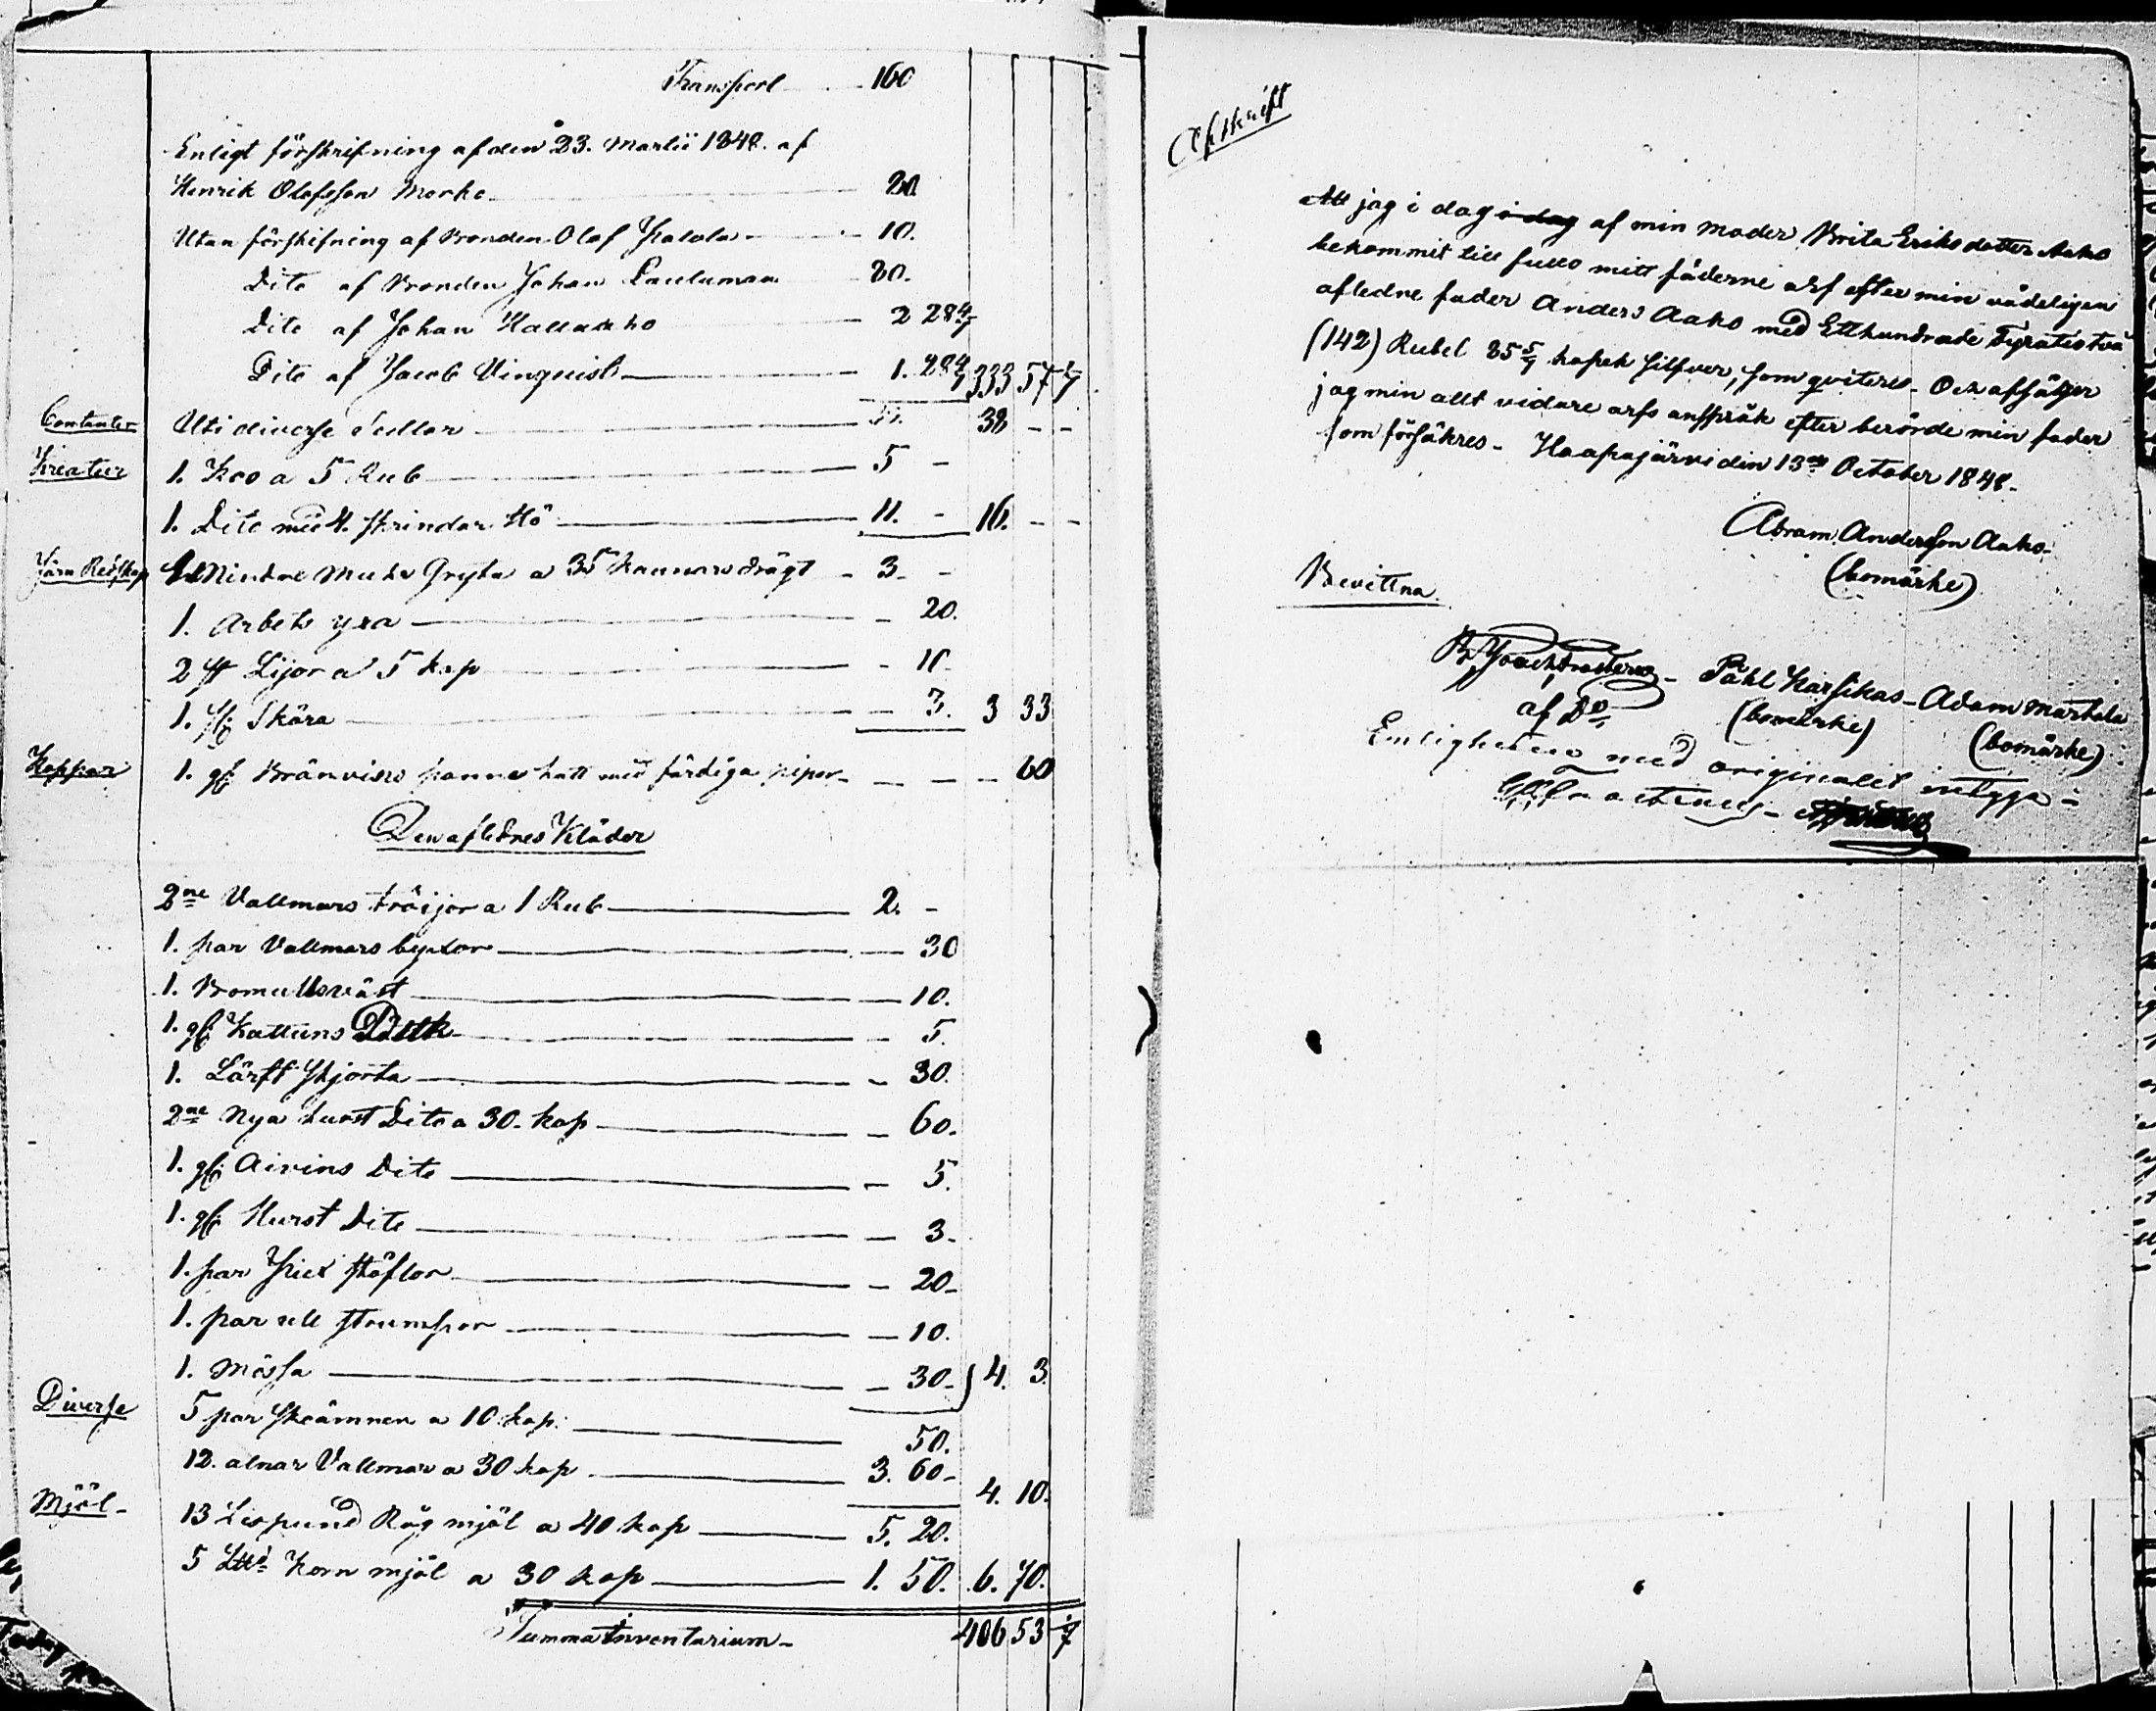 Transport 160
Enligt förskrifning af den 23. Martii 1848. af
Henrik Olofsson Morko 20.
Utan förskifning af Bonden Olof Hatola 10.
Dito af Bonden Johan Lauluman 80.
Dito af Johan 2 28 4/7
Dito af Jacob Vinquist 1. 28 4/7 333 57 1/7
Contanter Uti diverse Sedlar 38 - -
Kreatur 1. Koo a 5 Rub 5 -
1. Dito med 4. skrindor Hö 11. - 16. - -
Järn Redskap Gryta a 35 kannors drägt - 3 -
1. Arbets yxa - 20.
2 st Lijor a 5 kop - 10
1. gl: Skära - 3. 3 33
Koppar 1. gl: Bränvins panna hatt med färdiga pipor - - - 60
Den aflednes Kläder
2ne Vallmars tröijor a 1 Rub 2. -
1. par Vallmars byxor - 30
1. Bomullsväst - 10.
1. gl: Kattuns - 5.
1. Lärft skjorta - 30.
2ne Nya hurst Dito a 30. kop - 60.
1. gl: Aivins Dito - 5.
1. gl: Hurst Dito - 3.
1. par stöflor - 20 -
1. par ull strumpor - 10.
1. Mössa - 30 - 4. 3.
Diverse 5 par skoämnen a 10 kop. 50.
12. alnar Vallmar a 30 kop 3. 60 - 4. 10.
Mjöl - 13 Lispund Råg mjöl a 40 kop 5. 20.
5 Korn mjöl a 30 kop 1. 50. 6. 70.
Summa Inventarium - 406 53 1/7
Afskrift
Att jag i dag i dag af min moder Brita Eriksdotter Aako
bekommit till fullo mitt fäderne arf efter min vådeligen
afledne fader Anders Aako med Etthundrade Fyratiotvå
(142) Rubel 85 5/7 kopek silfver, som qviteras - Och afsäger
jag min allt vidare arfs anspråk efter berörde min fader
som försäkres - Haapajärvi den 13de October 1848 -
Abram Andersson Aako -
(bomärke)
Bevittna
Påhl Karsikas - Adam Martela
af Do (bomärke) (bomärke)
Enligheten med originalet intyga -